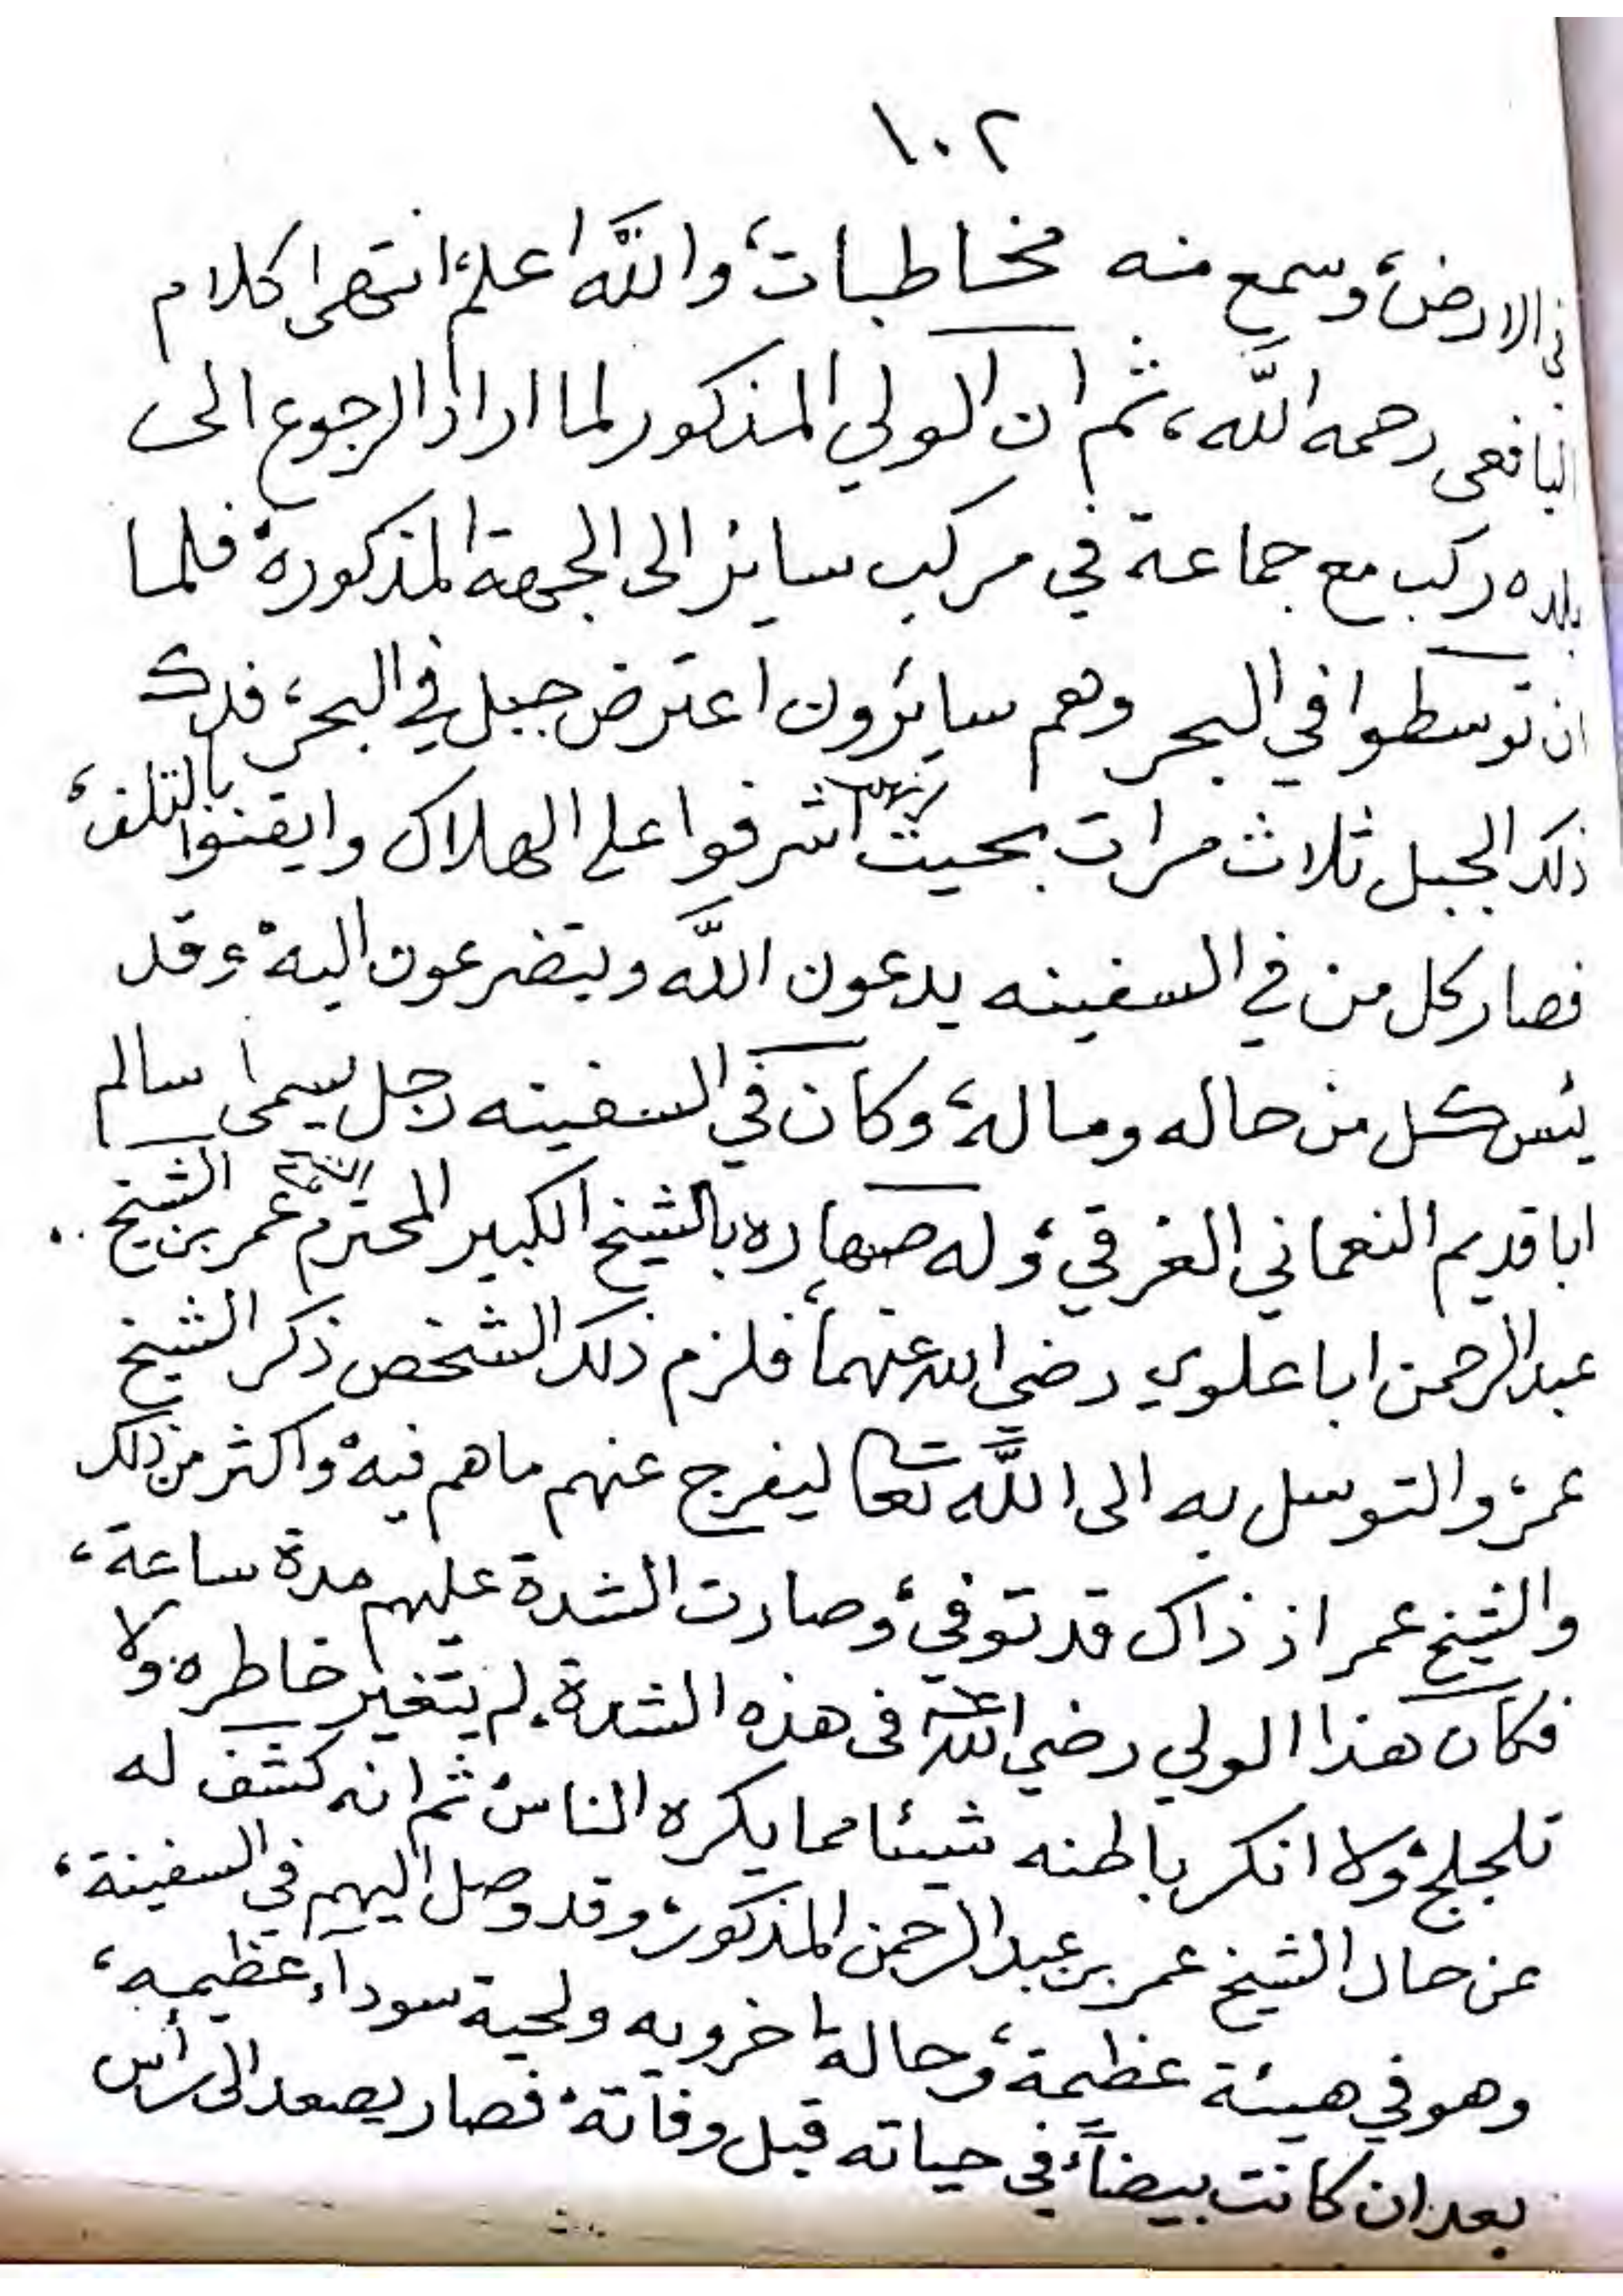 ١٠٢
في الارض، وسمع منه مخاطبات، والله اعلم، انتهى كلام
اليافعي رحمه الله، ثم ان الولي المذكور لما اراد الرجوع الى
بلده ركب مع جماعة في مركب سايز الى الجهة المذكورة فلما
ان توسطوا في البحر وهم سايرون اعترض جبل في البحر، فدك
ذلك الجبل ثلاث مرات بحيث انهم اشرفوا على الهلاك وايقنوا بالتلف،
فصار كل من في السفينه يدعون الله ويتضرعون اليه، وقد
يئس كل من حاله وماله، وكان في السفينه رجل يسمى سالم
ابا قديم النعماني الغرقي، وله صهاره بالشيخ الكبير المحترم الشيخ عمر بن الشيخ
عبد الرحمن ابا علوي رضي الله عنهما، فلزم ذلك الشخص ذكر الشيخ
عمر، والتوسل به الى الله تعالى ليفرج عنهم ما هم فيه، واكثر من ذلك
والشيخ عمر اذ ذاك قد توفي، وصارت الشدة عليهم مدة ساعة،
فكان هذا الولي رضي الله عنه في هذه الشدة، لم يتغير خاطره، ولا
تلجلج، ولا انكر باطنه شيئا مما يكره الناس، ثم انه كشف له
عن حال الشيخ عمر بن عبد الرحمن المذكور، وقد وصل اليهم في السفينة،
وهو في هيئة عظيمة، وحالة اخرويه ولحية سودآء عظيمه،
بعد ان كانت بيضاً، في حياته قبل وفاته، فصار يصعد الى رأس